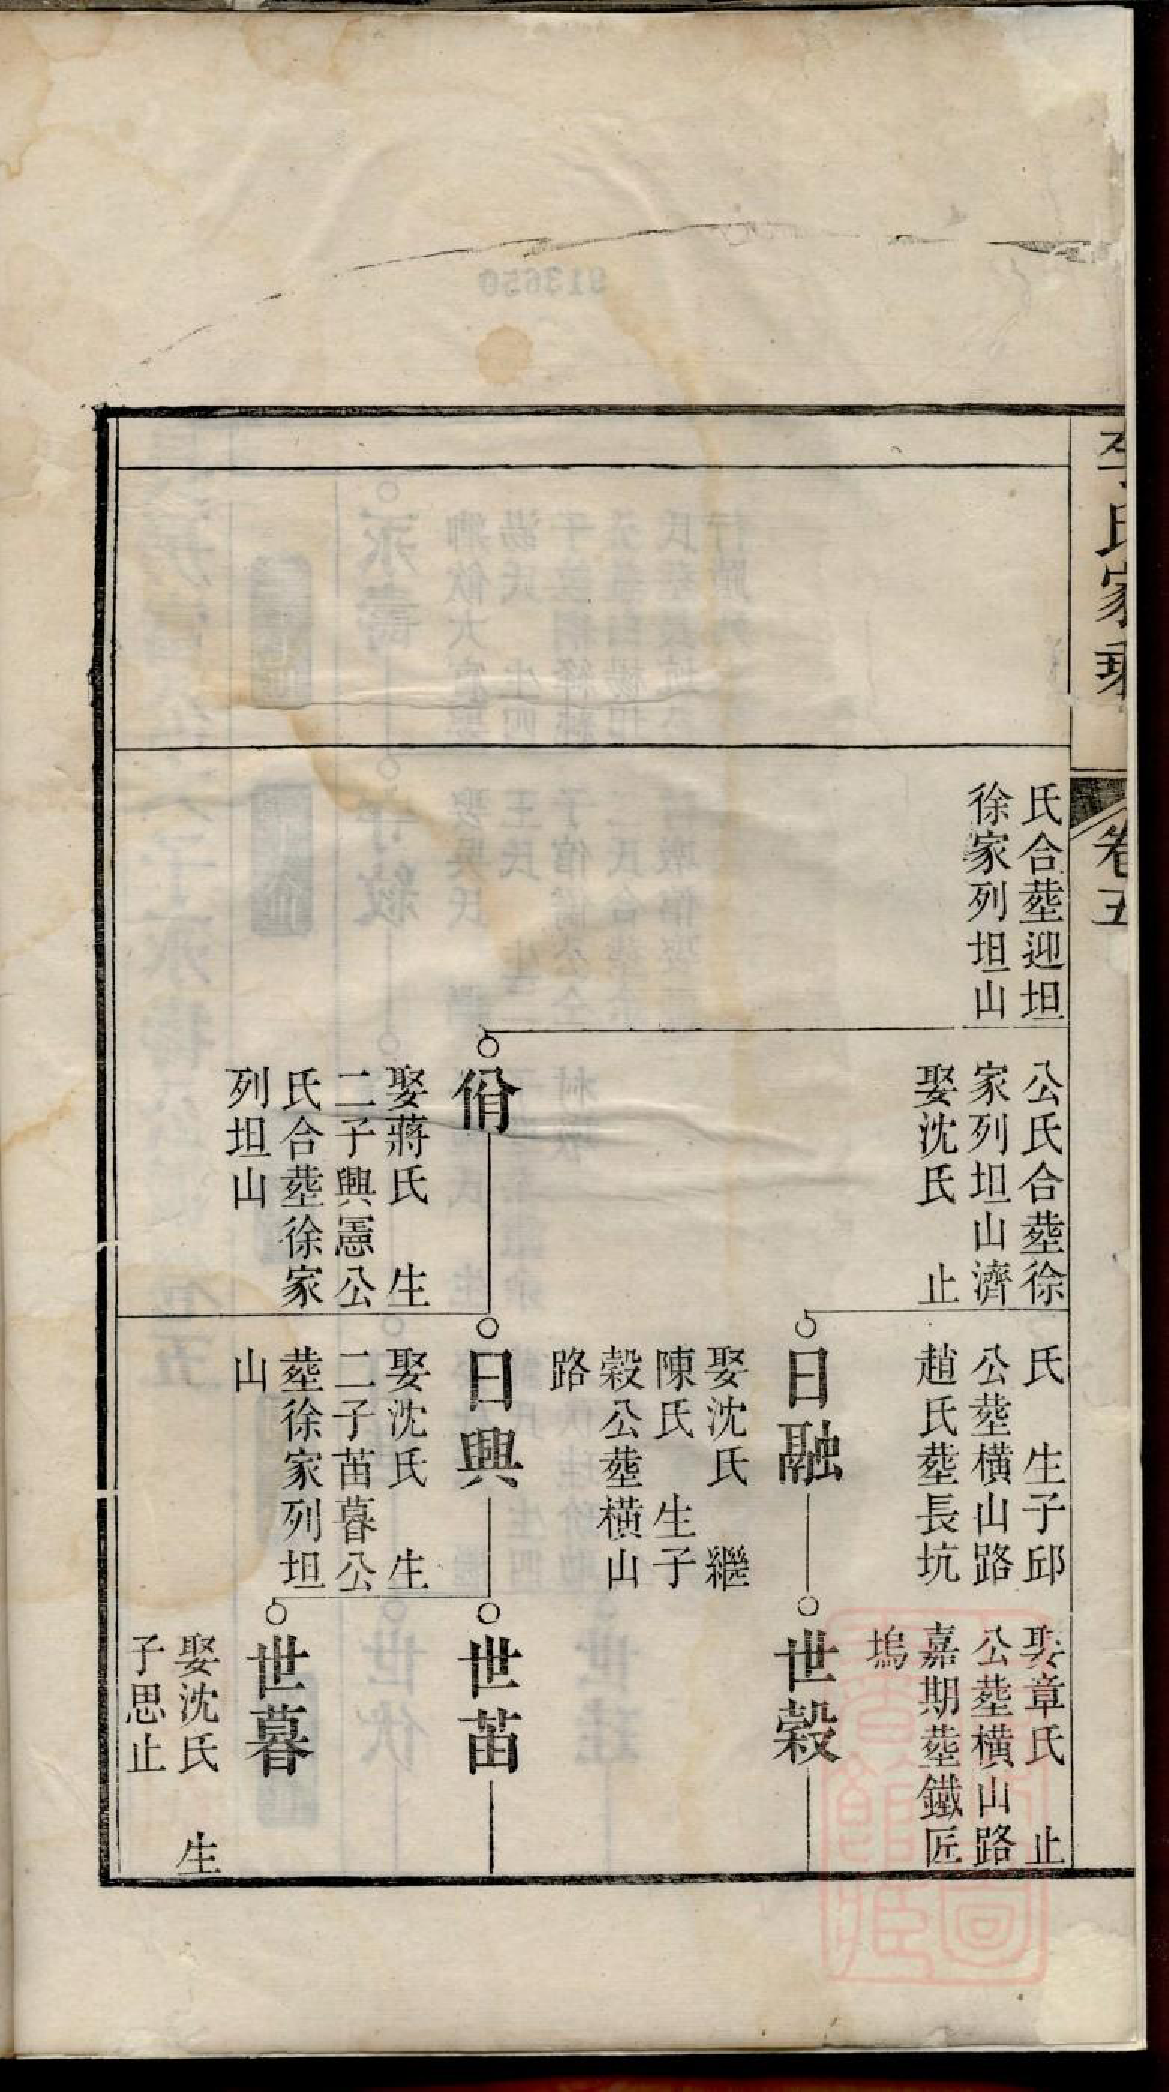 李氏家乘
卷五
氏合塟迎坦
徐家列坦山
公氏合塟徐
家列坦山濟
娶沈氏　止
佾
娶蔣氏　生
二子興憲公
氏合塟徐家
列坦山
氏　生子邱
公塟横山路
趙氏塟長坑
日融
娶沈氏　繼
陳氏　生子
穀公塟横山
路
日興
娶沈氏　生
二子苖暮公
塟徐家列坦
山
娶章氏　止
公塟横山路
嘉期塟鐵匠
塢
世穀
世苖
世暮
娶沈氏　生
子思止